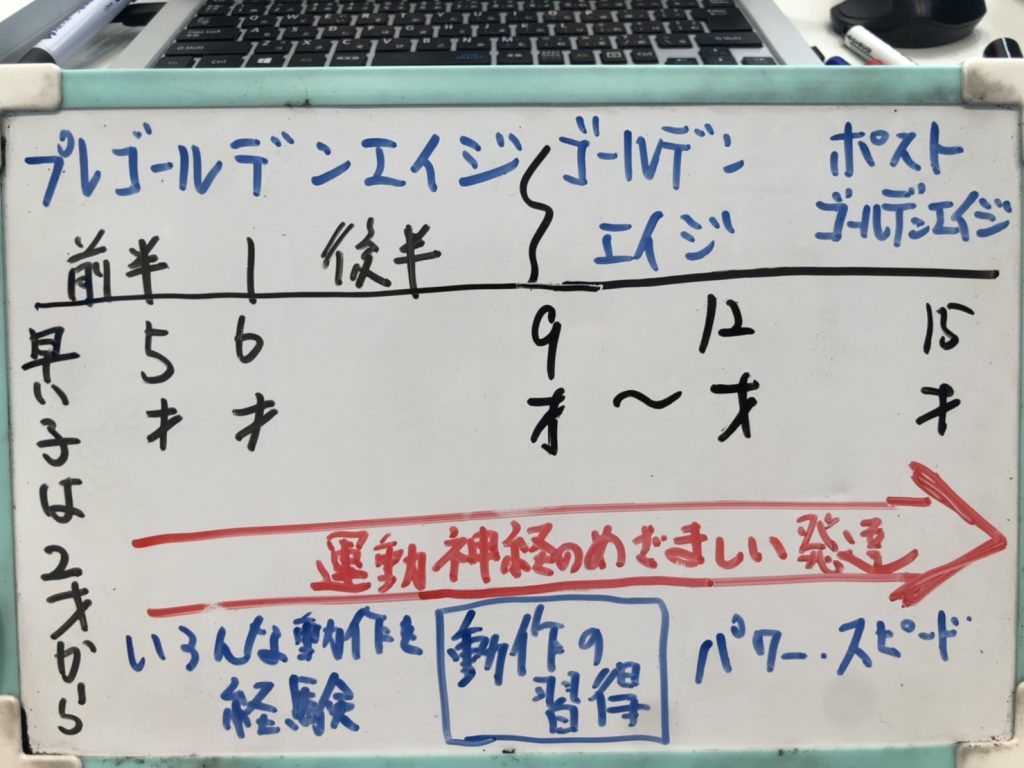 プレゴールデンエイジ
ゴールデン
エイジ
ポスト
ゴールデンエイジ
前半 | 後半
5才 6才 9才 〜 12才 15才
早い子は2才から
運動神経のめざましい発達
いろんな動作を
経験
動作の
習得
パワー・スピード